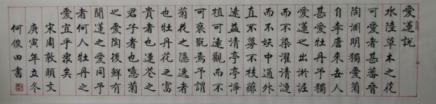 愛蓮説
水陸草木之花
可愛者甚蕃晉
陶淵明獨愛菊
自李唐來世人
甚愛牡丹予獨
愛蓮之出淤泥
而不染濯清漣
而不妖中通外
直不蔓不枝香
遠益清亭亭淨
植可遠觀而不
可褻翫焉予謂
菊花之隱逸者
也牡丹花之富
貴者也蓮花之
君子者也噫菊
之愛陶後鮮有
聞蓮之愛同予
者何人牡丹之
愛宜乎衆矣
宋周敦頤文
庚寅年立冬
何俊田書